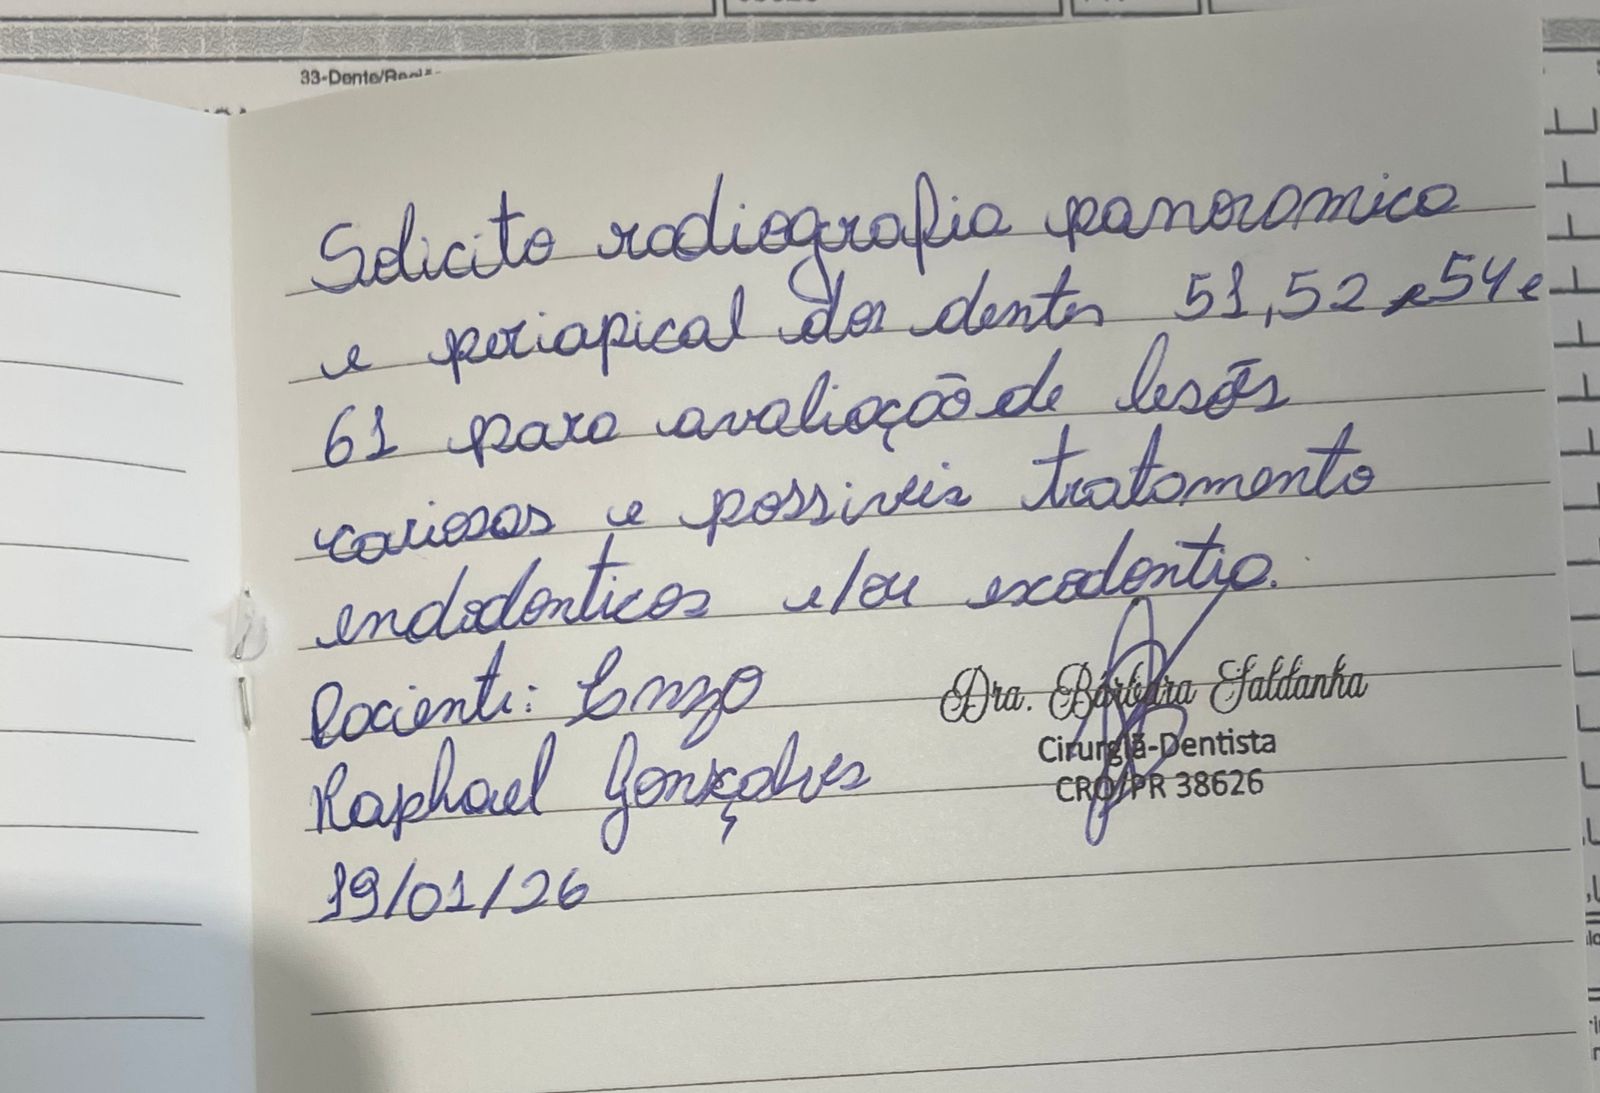 33-Dente/Região
Solicito radiografia panoramica
e periapical dos dentes 51, 52 e 54 e
61 para avaliação de lesões
cariosas e possiveis tratamento
endodonticos e/ou exodontia.
Paciente: Enzo
Raphael Gonçalves
19/01/26
Dra. Bárbara Saldanha
Cirurgiã-Dentista
CRO/PR 38626